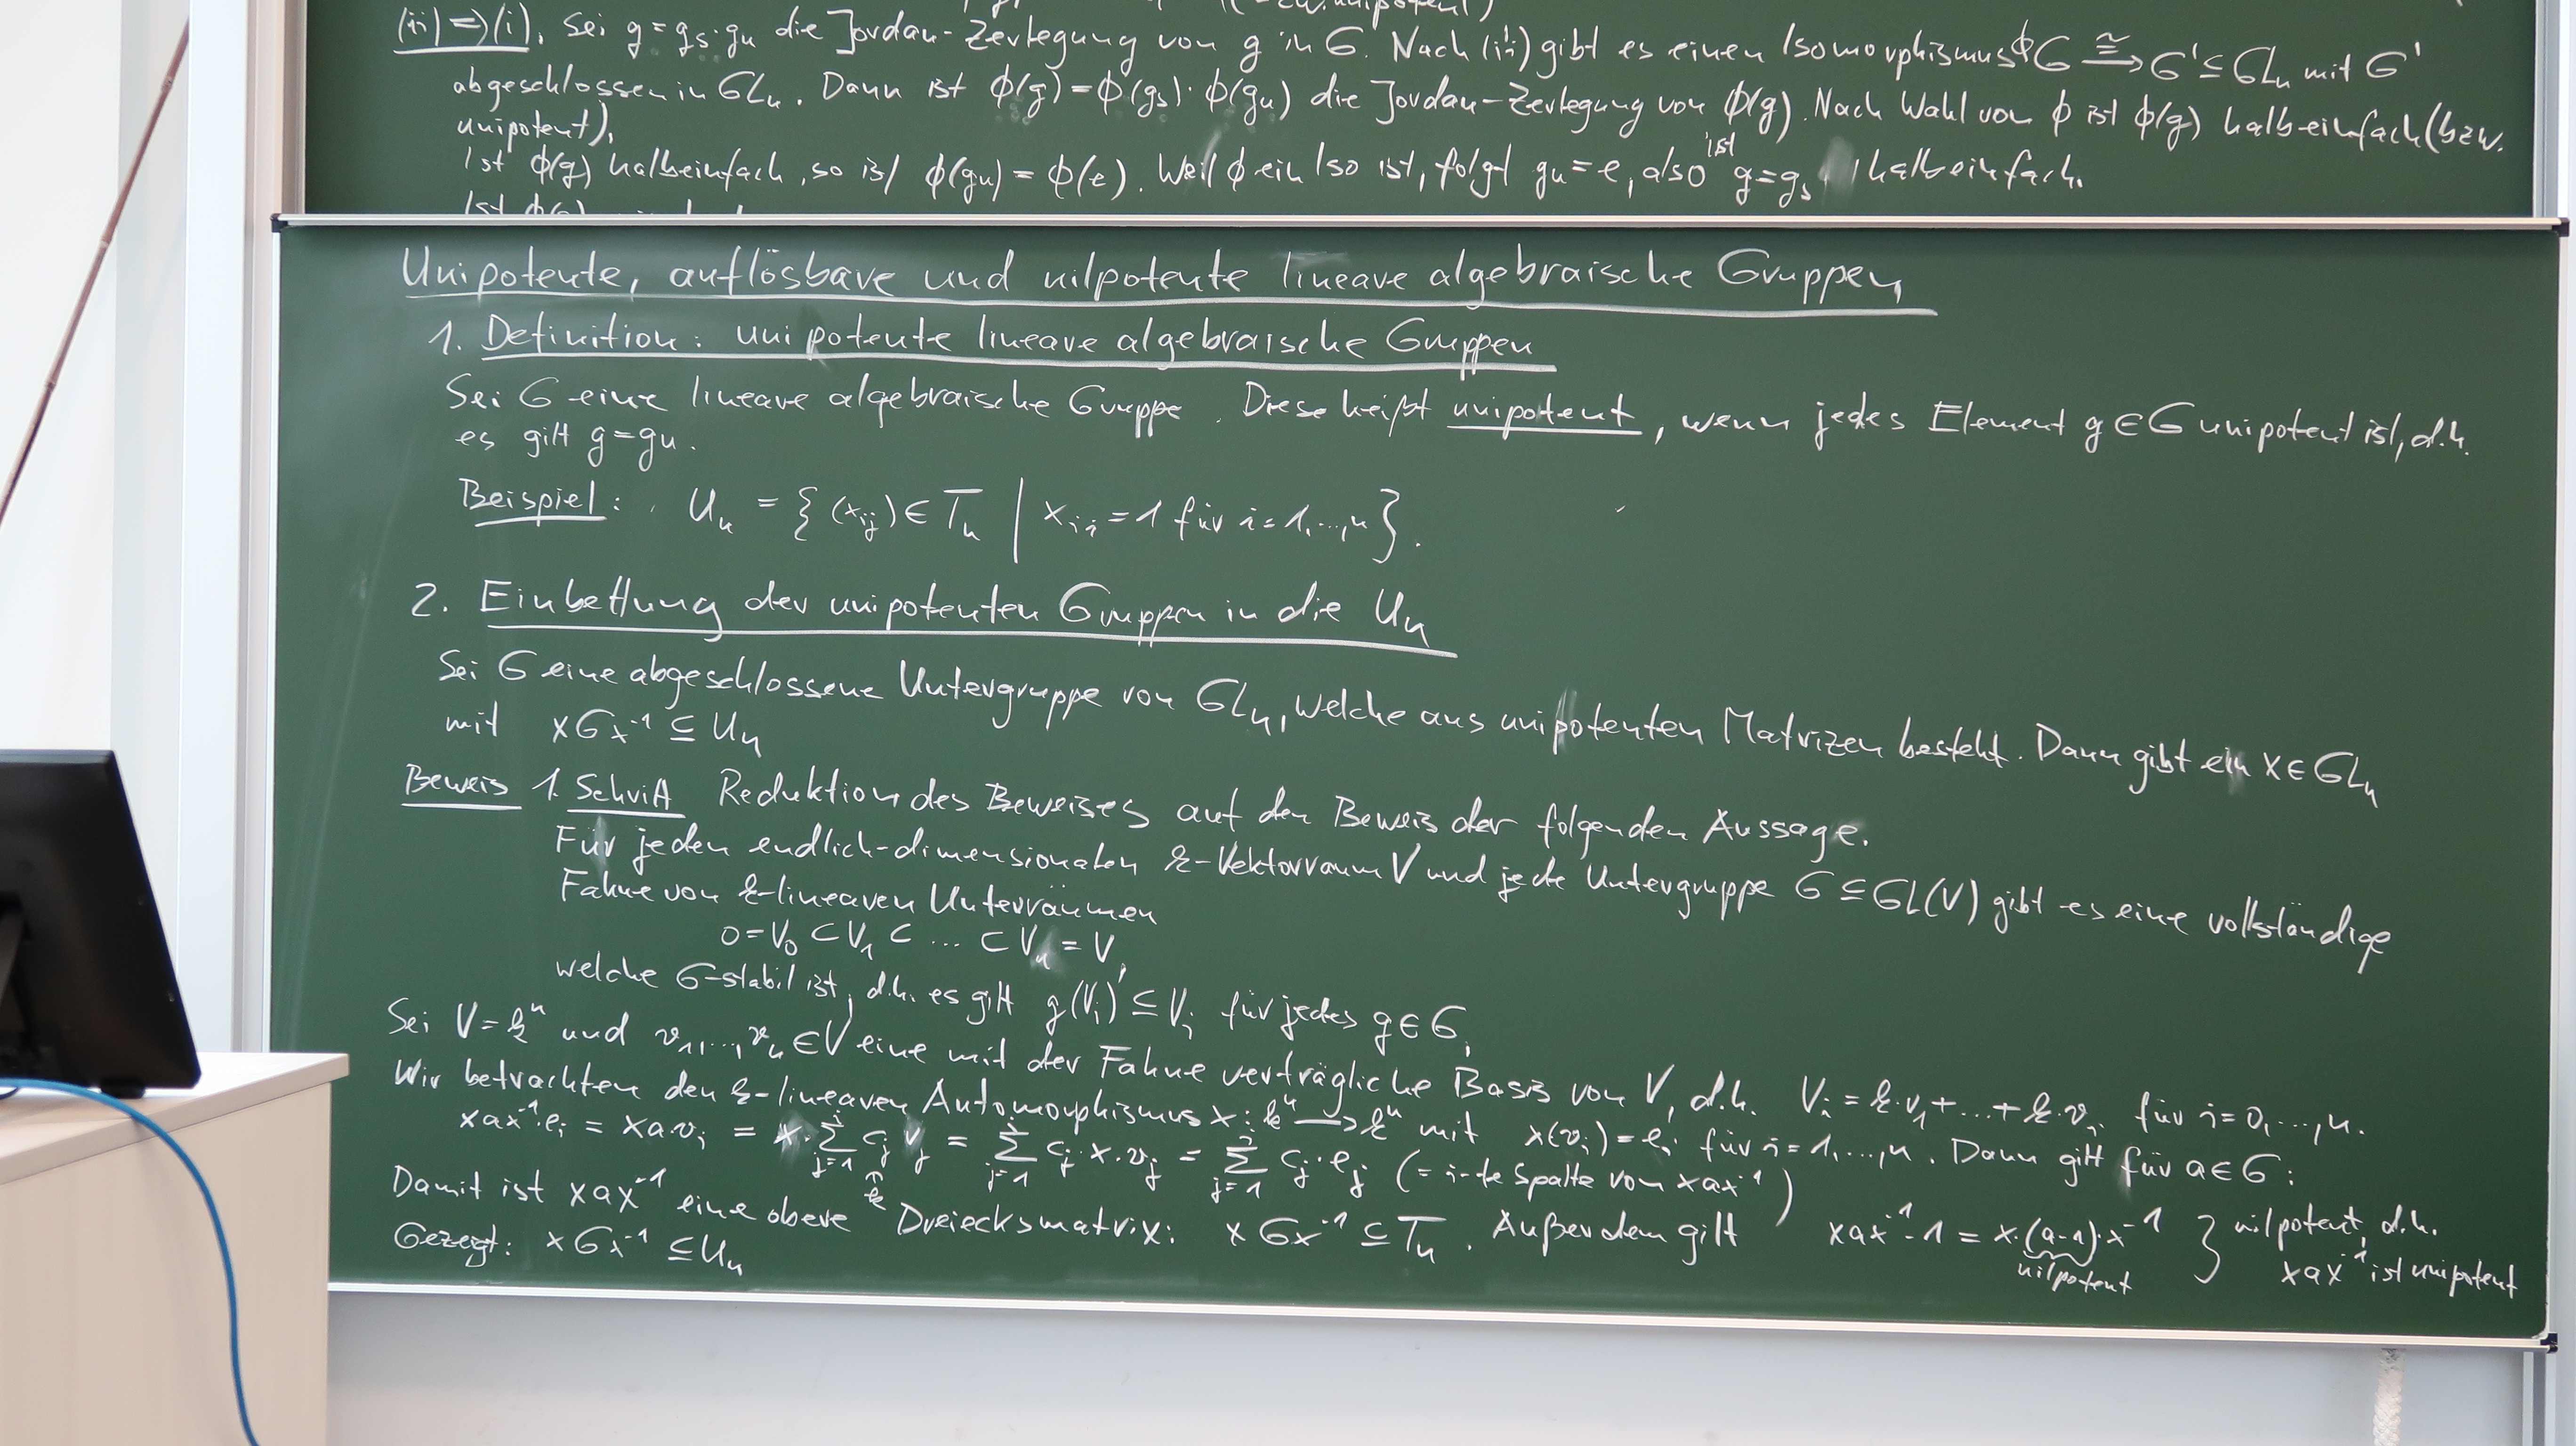 (ii) ⇒ (i). Sei g = g_s · g_u die Jordan-Zerlegung von g in G. Nach (ii) gibt es einen Isomorphismus ϕ G ≅→ G' ⊆ GL_n mit G'
abgeschlossen in GL_n. Dann ist ϕ(g) = ϕ(g_s) · ϕ(g_u) die Jordan-Zerlegung von ϕ(g). Nach Wahl von ϕ ist ϕ(g) halbeinfach (bzw.
unipotent).
Ist ϕ(g) halbeinfach, so ist ϕ(g_u) = ϕ(e). Weil ϕ ein Iso ist, folgt g_u = e, also ist g = g_s halbeinfach.
Unipotente, auflösbare und nilpotente lineare algebraische Gruppen
1. Definition: unipotente lineare algebraische Gruppen
Sei G eine lineare algebraische Gruppe. Diese heißt unipotent, wenn jedes Element g ∈ G unipotent ist, d.h.
es gilt g = g_u.
Beispiel: U_n = { (x_ij) ∈ T_n | x_ii = 1 für i = 1, ..., n }.
2. Einbettung der unipotenten Gruppen in die U_n
Sei G eine abgeschlossene Untergruppe von GL_n, welche aus unipotenten Matrizen besteht. Dann gibt ein x ∈ GL_n
mit xGx^-1 ⊆ U_n
Beweis 1. Schritt Reduktion des Beweises auf den Beweis der folgenden Aussage.
Für jeden endlich-dimensionalen k-Vektorraum V und jede Untergruppe G ⊆ GL(V) gibt es eine vollständige
Fahne von k-linearen Unterräumen
0 = V_0 ⊂ V_1 ⊂ ... ⊂ V_n = V,
welche G-stabil ist, d.h. es gilt g(V_i) ⊆ V_i für jedes g ∈ G.
Sei V = k^n und v_1, ..., v_n ∈ V eine mit der Fahne verträgliche Basis von V, d.h. V_i = k·v_1 + ... + k·v_i für i = 0, ..., n.
Wir betrachten den k-linearen Automorphismus x: k^n → k^n mit x(v_i) = e_i für i = 1, ..., n. Dann gilt für a ∈ G:
xax^-1·e_i = xa·v_i = x·∑_{j=1}^i c_j v_j = ∑_{j=1}^i c_j·x·v_j = ∑_{j=1}^i c_j·e_j (= i-te Spalte von xax^-1)
Damit ist xax^-1 eine obere Dreiecksmatrix: xGx^-1 ⊆ T_n. Außerdem gilt xax^-1 - 1 = x·(a-1)·x^-1 } nilpotent, d.h.
nilpotent xax^-1 ist unipotent
Gezeigt: xGx^-1 ⊆ U_n